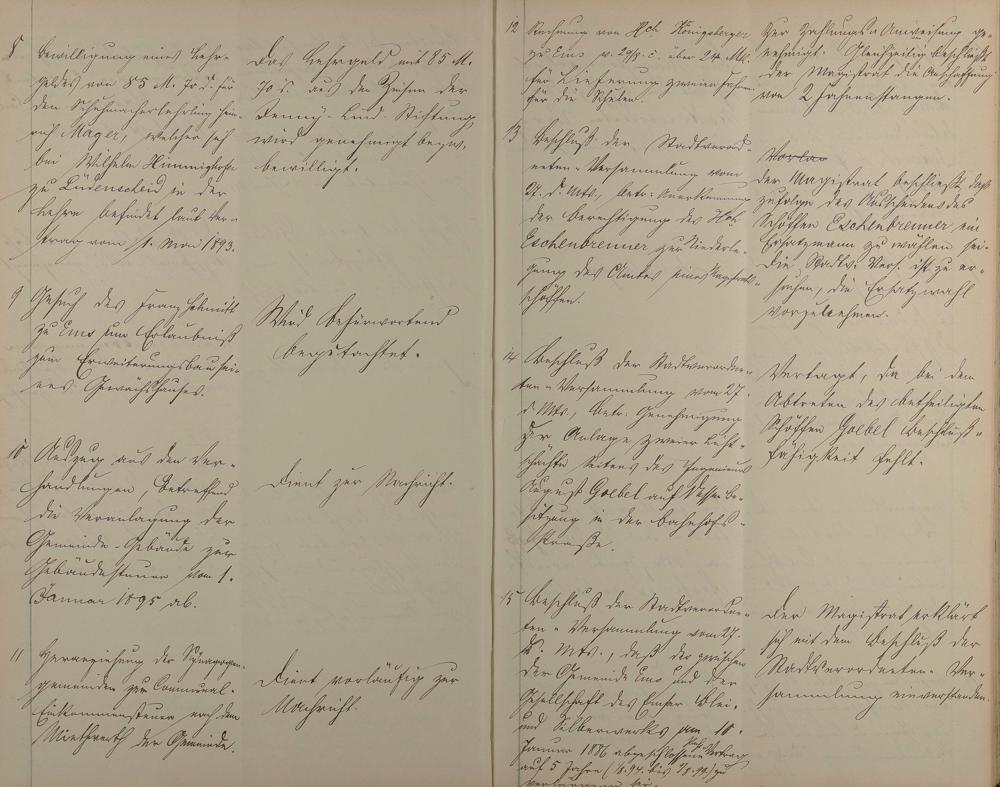 8
Bewilligung eines Lehr-
geldes von 85 M. 70 d. für
den Schuhmacherlehrling Hein-
rich Mager, welcher sich
bei Wilhelm Himmighofen
zu Lüdenscheid in der
Lehre befindet laut Ver-
trag vom 1. Mai 1893.
Das Lehrgeld mit 85 M.
70 d. aus den Zinsen der
Stiftung
wird genehmigt bezw.
bewilligt.
9
Gesuch des Franz Schmidt
zu Ems um Erlaubniß
zum Erweiterungsbau sei-
nes Gewächshauses.
Wird befürwortend
begutachtet.
10
Auszug aus den Ver-
handlungen, betreffend
die Veranlagung der
Gemeinde-Gebäude zur
Gebäudesteuer vom 1.
Januar 1895 ab.
Dient zur Nachricht.
11
Heranziehung der Synagogen-
gemeinden zur Communal-
Einkommensteuer nach dem
Miethwerth der Gemeinde.
Dient vorläufig zur
Nachricht.
12
Rechnung von Hch. Königsberger
zu Ems v. 29/5. c. über 24 Mk.
für Lieferung zweier Fahnen
für die Schulen.
Der Zahlungs-Anweisung ge-
nehmigt. Gleichzeitig beschließt
der Magistrat die Anschaffung
von 2 Fahnenstangen.
13
Beschluß der Stadtverord-
neten-Versammlung vom
27. d. Mts., betr: Anerkennung
der Berechtigung des Hch.
Eschenbrenner zur Niederle-
gung des Amtes eines
schöffen.
Vorlae
Der Magistrat beschließt, daß
zufolge des Ausscheidens des
Schöffen Eschenbrenner ein
Ersatzmann zu wählen sei.
Die Stadtv. Vers. ist zu er-
suchen, die Ersatzwahl
vorzunehmen.
14
Beschluß der Stadtverordne-
ten-Versammlung vom 27.
d. Mts., betr: Genehmigung
zur Anlage zweier Licht-
schachte seitens des Ingenieurs
August Goebel auf dessen Be-
sitzung in der Bahnhof-
straße.
Vertagt, da bei dem
Abtreten des betheiligten
Schöffen Goebel Beschluß-
fähigkeit fehlt.
15
Beschluß der Stadtverordne-
ten-Versammlung vom 27.
d. Mts., daß der zwischen
der Gemeinde Ems und der
Gesellschaft des Emser Blei-
und Silberwerks am 10.
Januar 1886 abgeschlossene Vertrag
auf 5 Jahre (1/8.94. bis 1/8.99.) zu
verlängern sei.
Der Magistrat erklärt
sich mit dem Beschluß der
Stadtverordneten-Ver-
sammlung einverstanden.